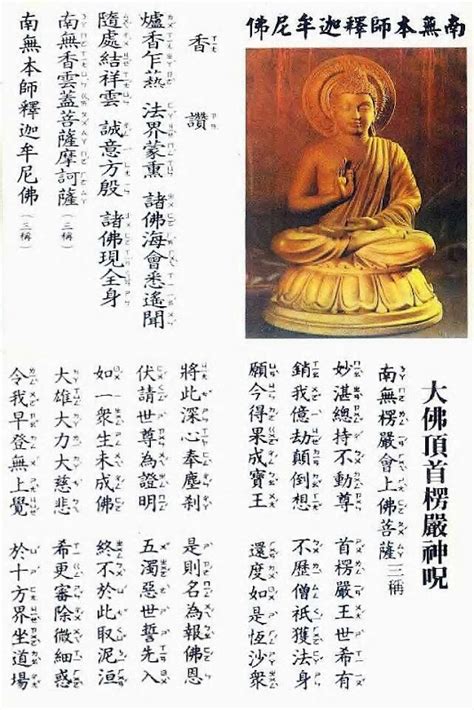 南無本師釋迦牟尼佛
香讚
爐香乍爇 法界蒙熏 諸佛海會悉遙聞
隨處結祥雲 誠意方殷 諸佛現全身
南無香雲蓋菩薩摩訶薩（三稱）
南無本師釋迦牟尼佛（三稱）
大佛頂首楞嚴神呪
南無楞嚴會上佛菩薩 三稱
妙湛總持不動尊 首楞嚴王世希有
銷我億劫顛倒想 不歷僧祇獲法身
願今得果成寶王 還度如是恆沙眾
將此深心奉塵剎 是則名為報佛恩
伏請世尊為證明 五濁惡世誓先入
如一眾生未成佛 終不於此取泥洹
大雄大力大慈悲 希更審除微細惑
令我早登無上覺 於十方界坐道場